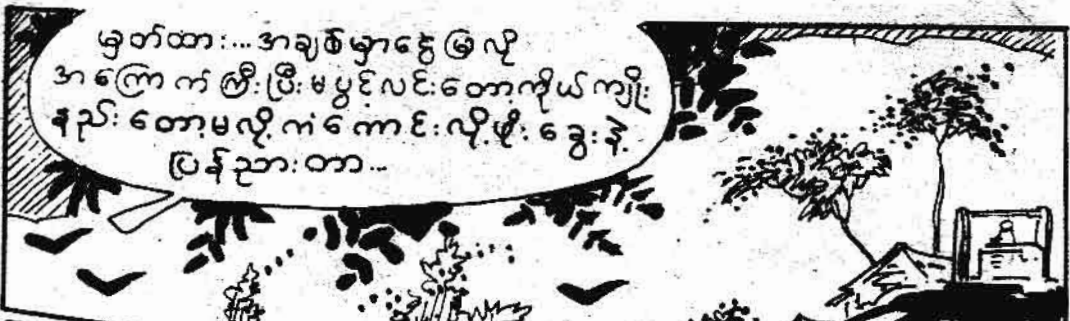 မှတ်ထား...အချစ်မှာငွေမြဲလို
အကြောက်ကြီးပြီးမပွင့်လင်းတော့ကိုယ်ကျိုး
နည်းတော့မလို့ကံကောင်းလို့ဖိုးခွေးနဲ့
ပြန်ညားတာ...